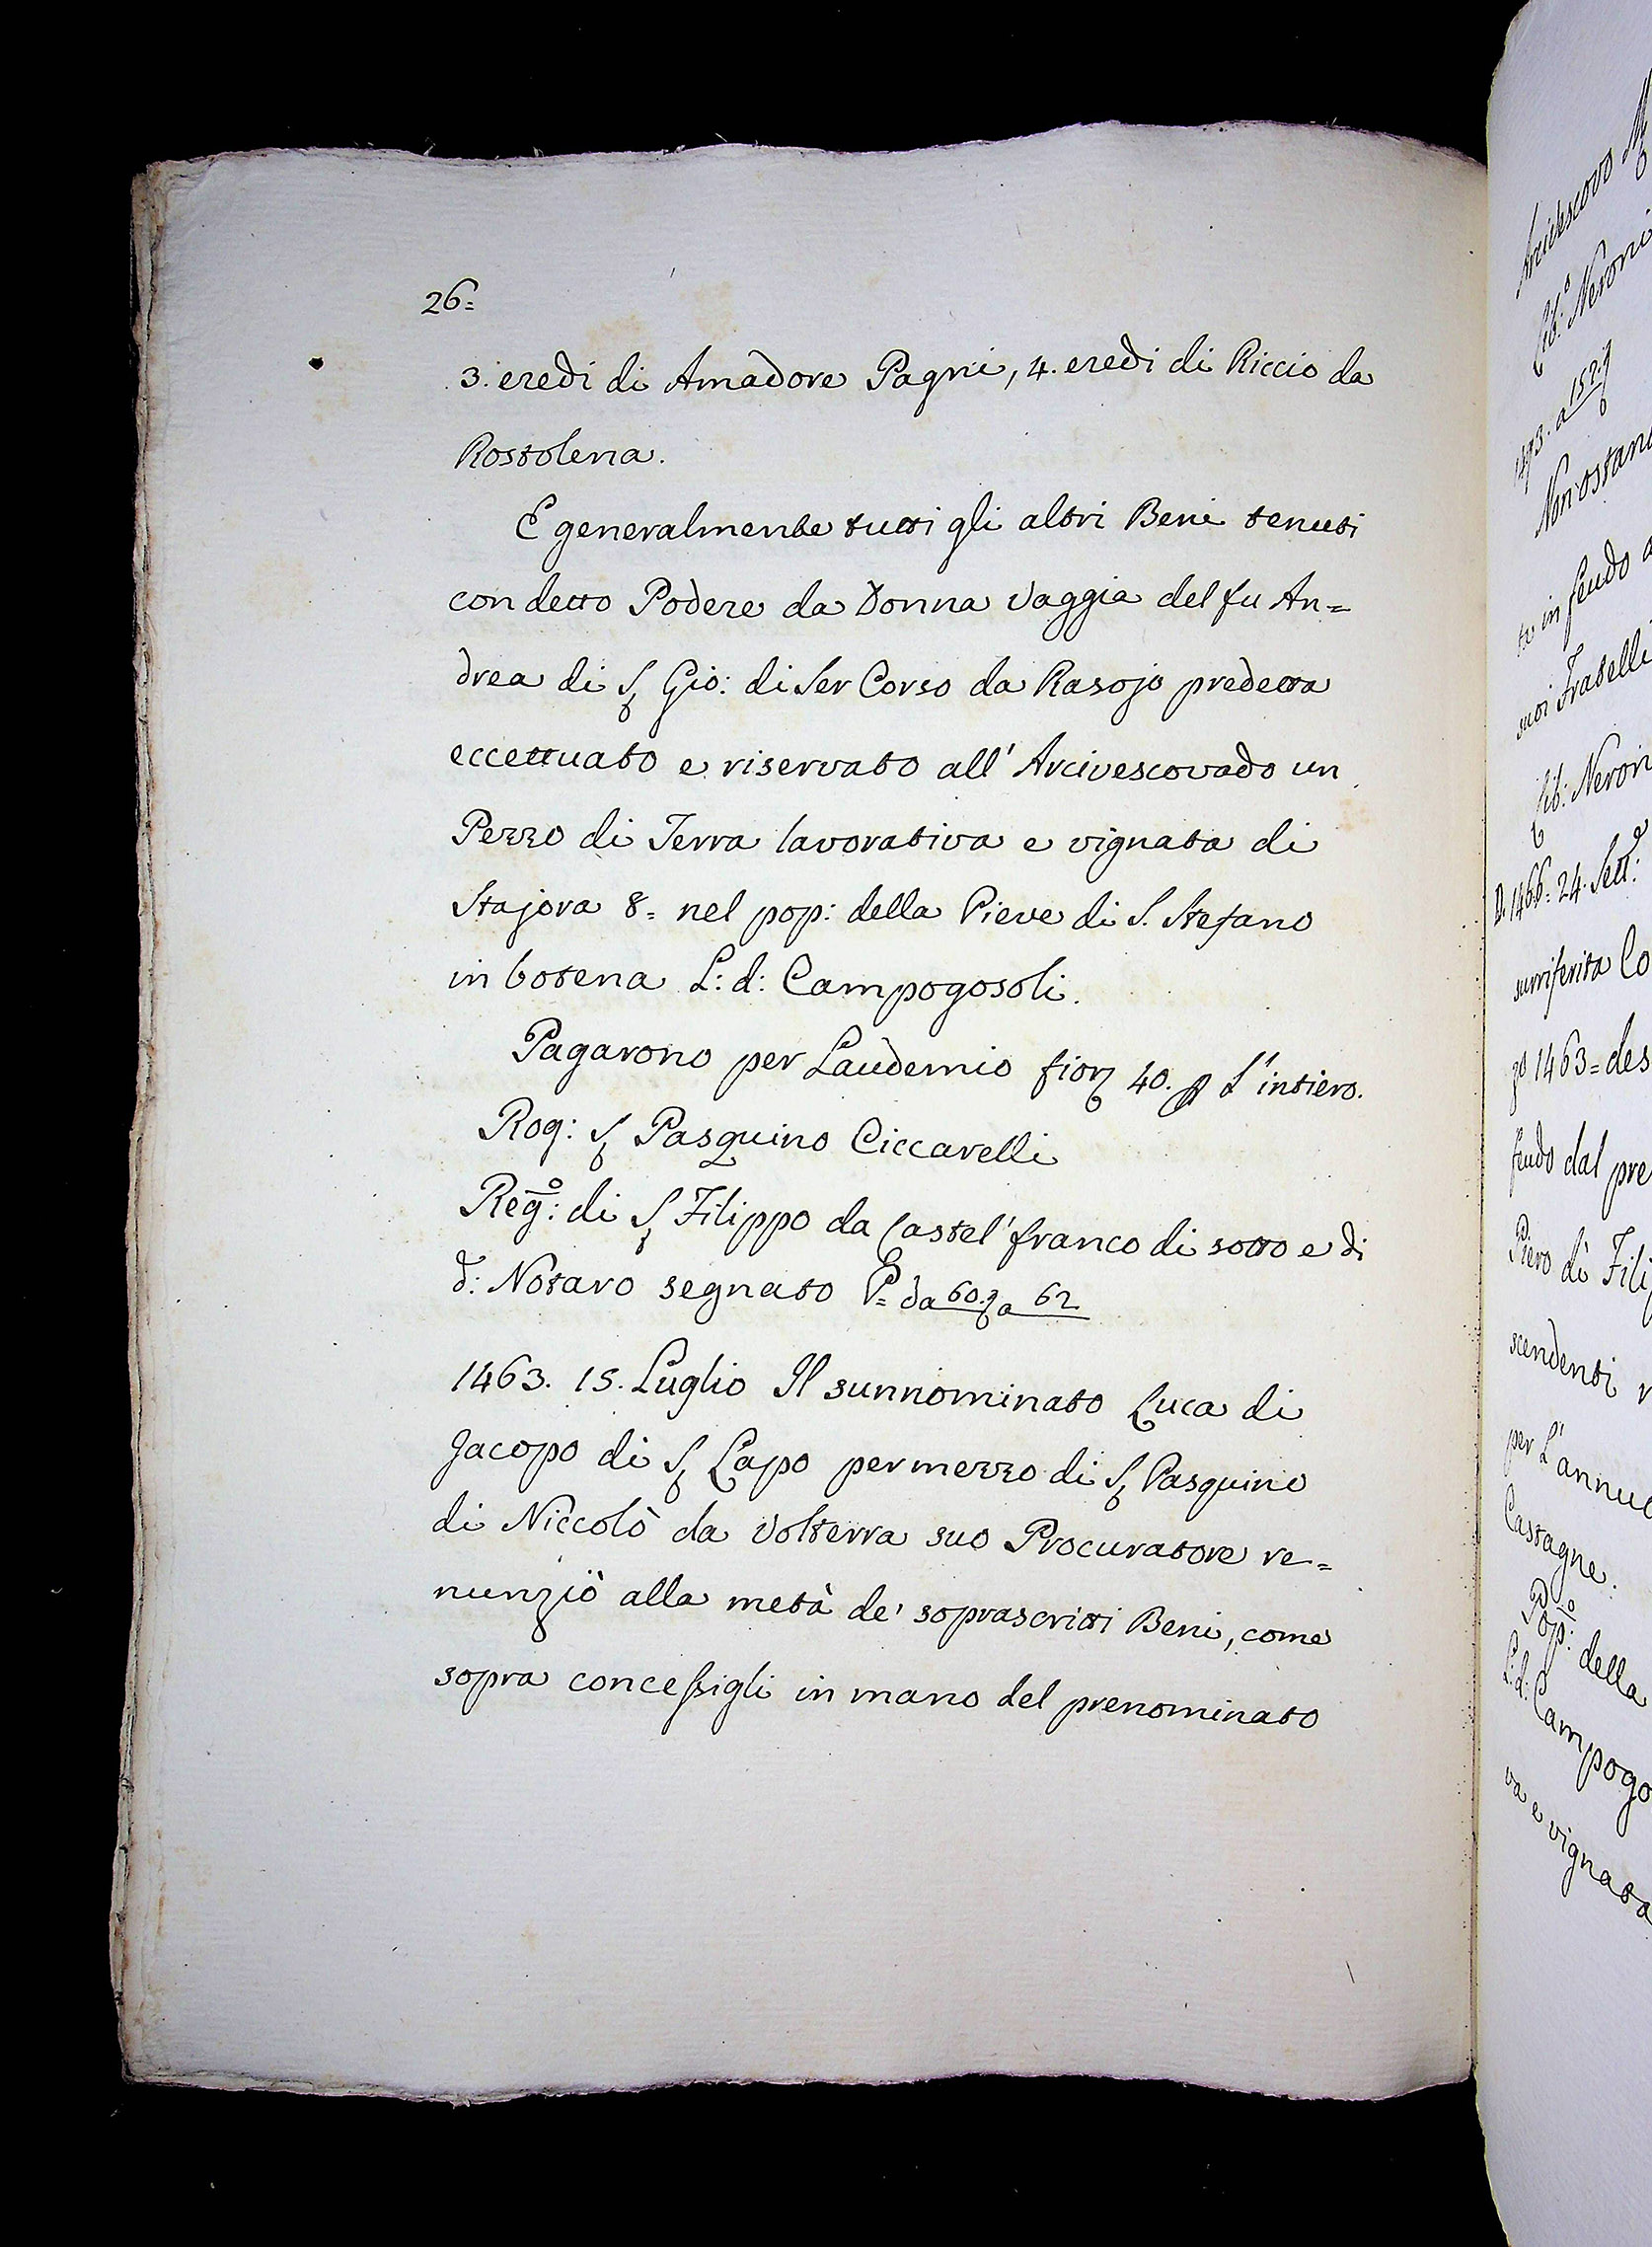 26=
3. eredi di Amadore Pagni, 4. eredi di Riccio da
Rostolena.
E generalmente tutti gli altri Beni tenuti
con detto Podere da Donna Vaggia del fu An=
drea di S. Gio: di Ser Corso da Rasojo predetta
eccettuato e riservato all' Arcivescovado un
Pezzo di Terra lavorativa e vignata di
Stajora 8= nel pop: della Pieve di S. Stefano
in botena L: d: Campogosoli.
Pagarono per Laudemio fior. 40. p L'intiero.
Rog: S. Pasquino Ciccarelli
Reg.º: di S. Filippo da Castel' franco di sotto e di
d: Notaro segnato P= da 60. a 62
1463. 15. Luglio Il sunnominato Luca di
Jacopo di S. Lapo per mezzo di S. Pasquino
di Niccolò da Volterra suo Procuratore re=
nunziò alla metà de' soprascritti Beni, come
sopra concessigli in mano del prenominato
Arcivescovo
Lib:º Neroni
1493. a 152.
Nonostan
to in feudo a
suoi Fratelli
Lib: Neron
D. 1466= 24. Sett.e
surriferita Co
go 1463= des
feudo dal pre
Piero di Fili
scendenti
per L'annuo
Castagne.
Pop:º della
L: d: Campogo
va e vignata